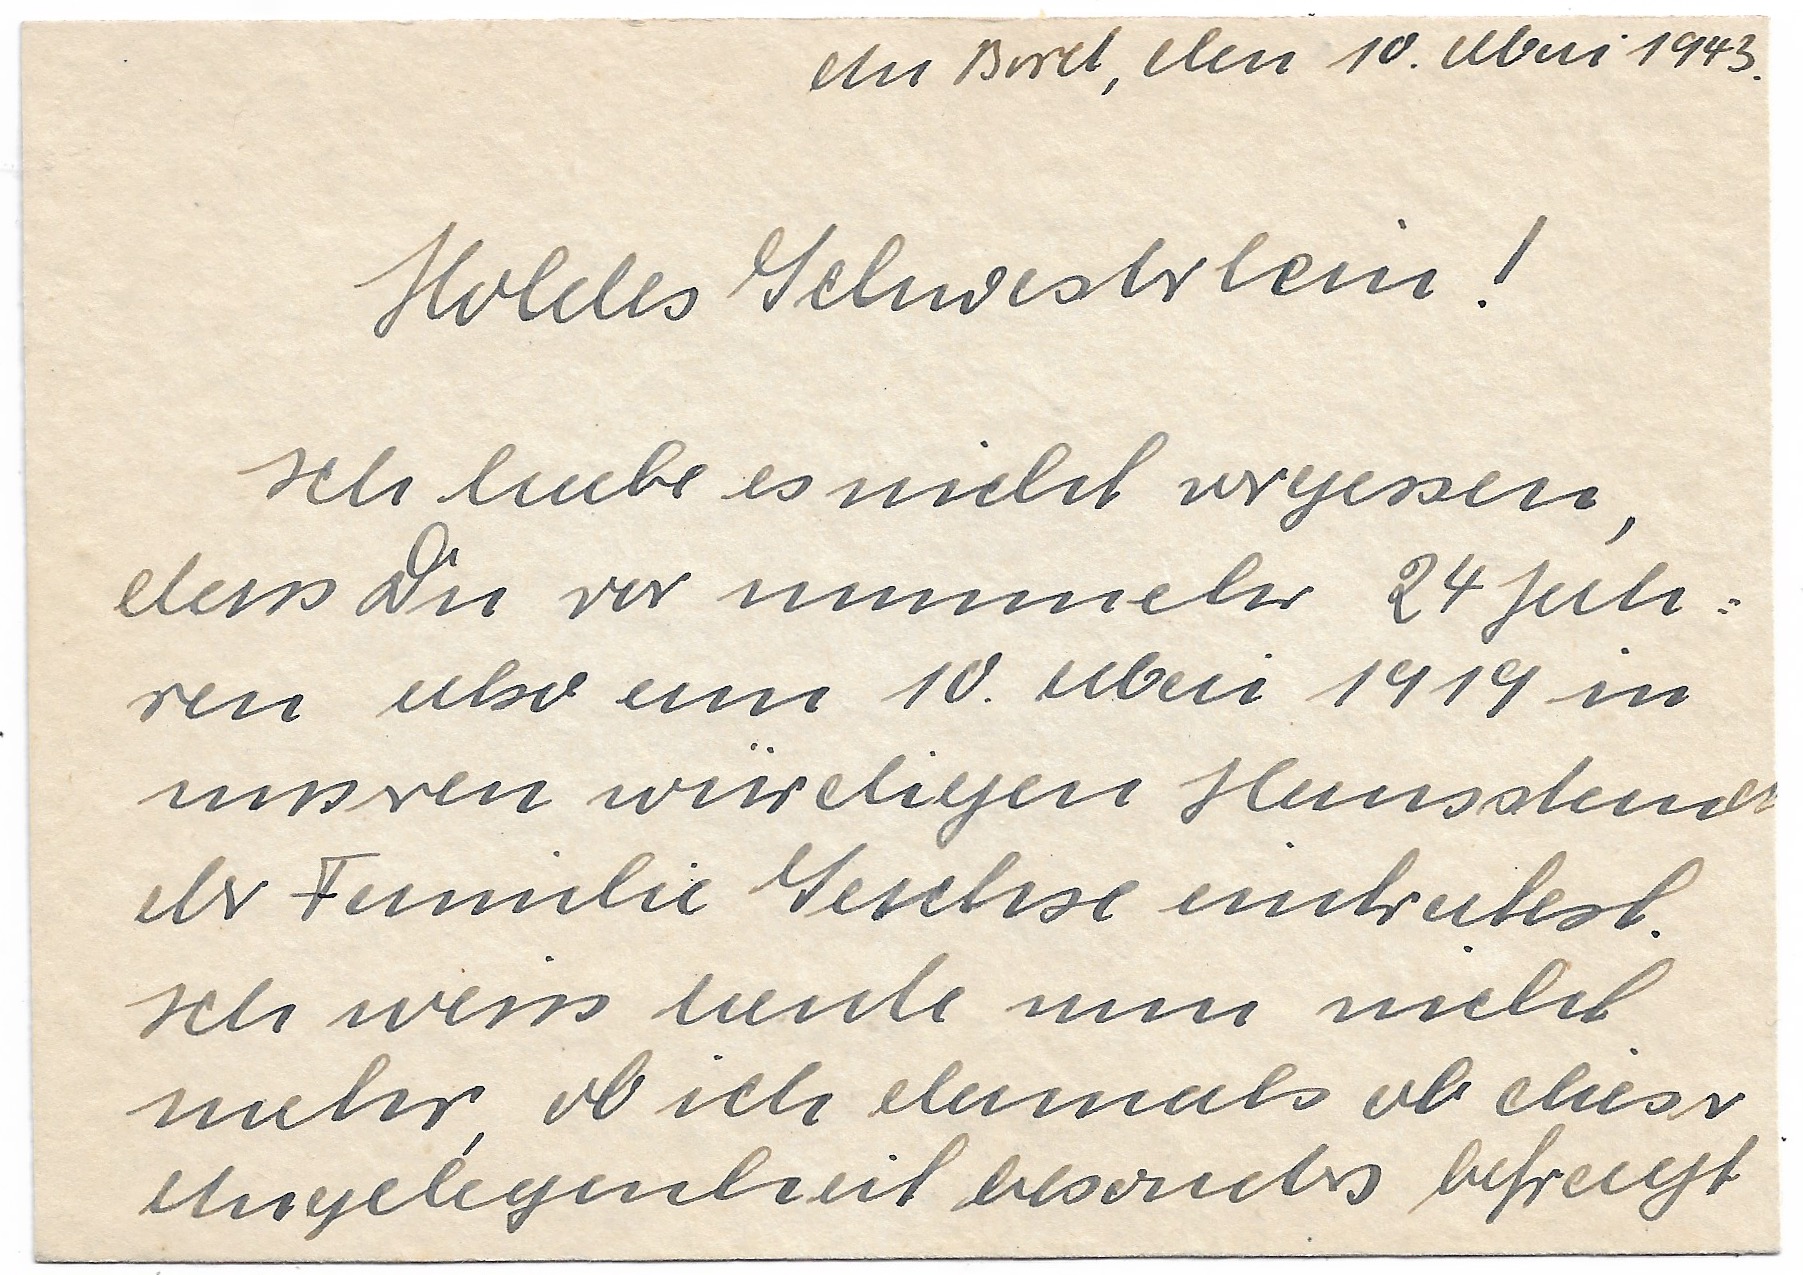 An Bord, den 10. Mai 1943.
Holdes Schwesterlein!
Ich habe es nicht vergessen,
dass Du vor nunmehr 24 Jah=
ren also am 10. Mai 1919 in
unseren würdigen Hausstand
der Familie eintratest.
Ich weiss heute nun nicht
mehr, ob ich damals ob dieser
Angelegenheit besonders befragt